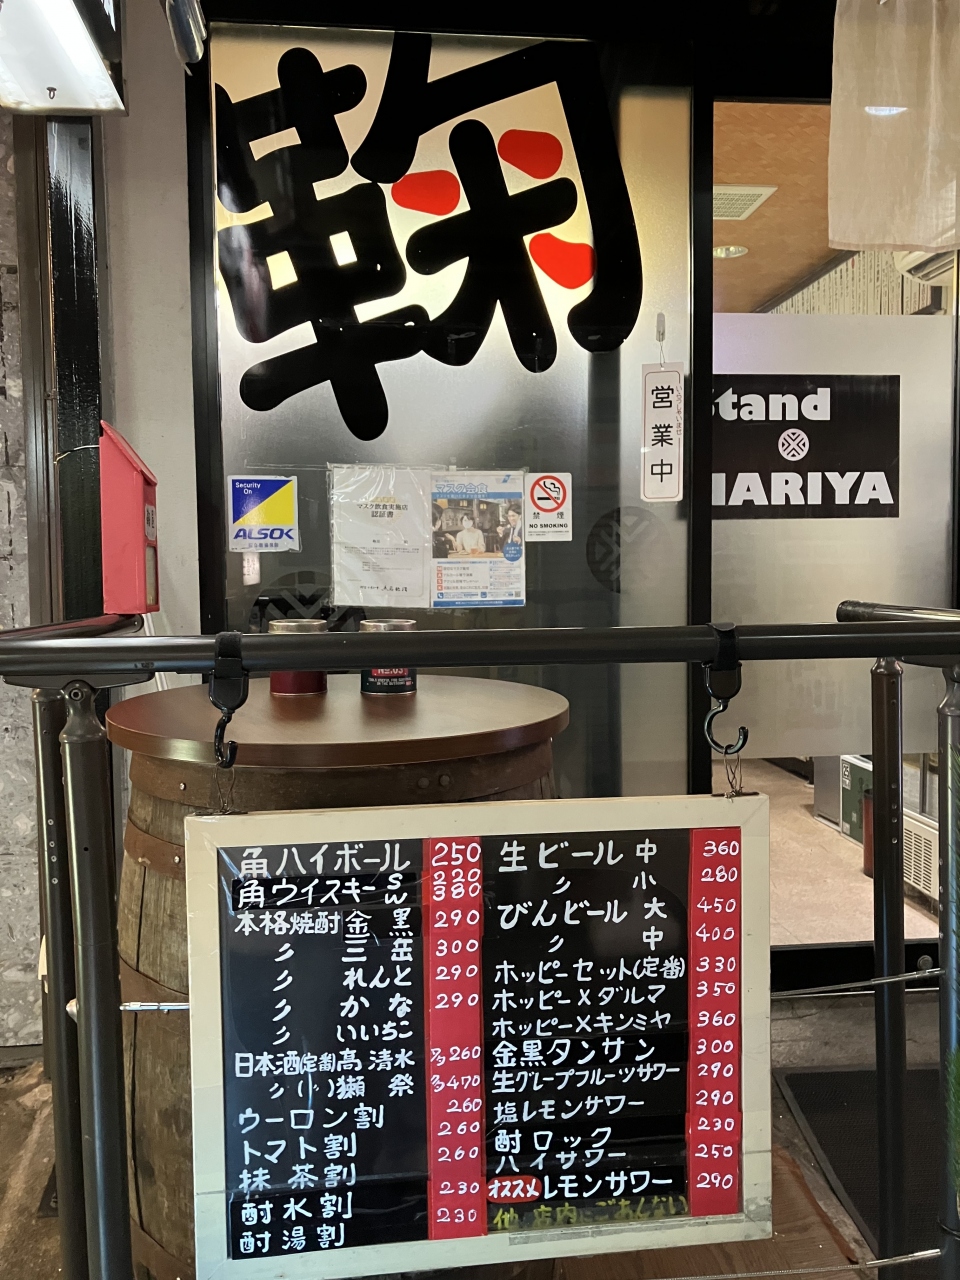 鞠
営業中
いらっしゃいませ
Stand
MARIYA
Security
On
ALSOK
マスク飲食実施店
認証書
マスク会食
禁煙
NO SMOKING
角ハイボール 250
角ウイスキー S 220
W 380
本格焼酎 金黒 290
〃 三岳 300
〃 れんと 290
〃 かな 290
〃 いいちこ
日本酒(定番)高清水 260
〃 ( 〃 )獺祭 470
ウーロン割 260
トマト割 260
抹茶割 260
酎水割 230
酎湯割 230
生ビール 中 360
〃 小 280
びんビール 大 450
〃 中 400
ホッピーセット(定番) 330
ホッピー×ダルマ 350
ホッピー×キンミヤ 360
金黒タンサン 300
生グレープフルーツサワー 290
塩レモンサワー 290
酎ロック 230
ハイサワー 250
オススメ レモンサワー 290
他 店内にごあんない